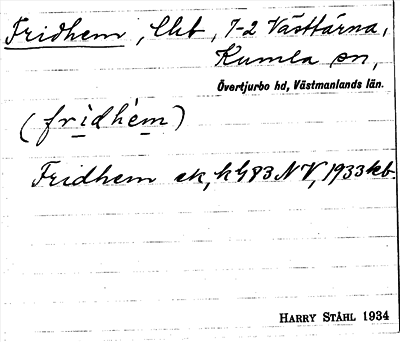 Fridhem, lht, 7-2 Västtärna,
Kumla sn,
Övertjurbo hd, Västmanlands län.
(fridhem)
Fridhem ek, h 983 NV, 1933 kb.
HARRY STÅHL 1934